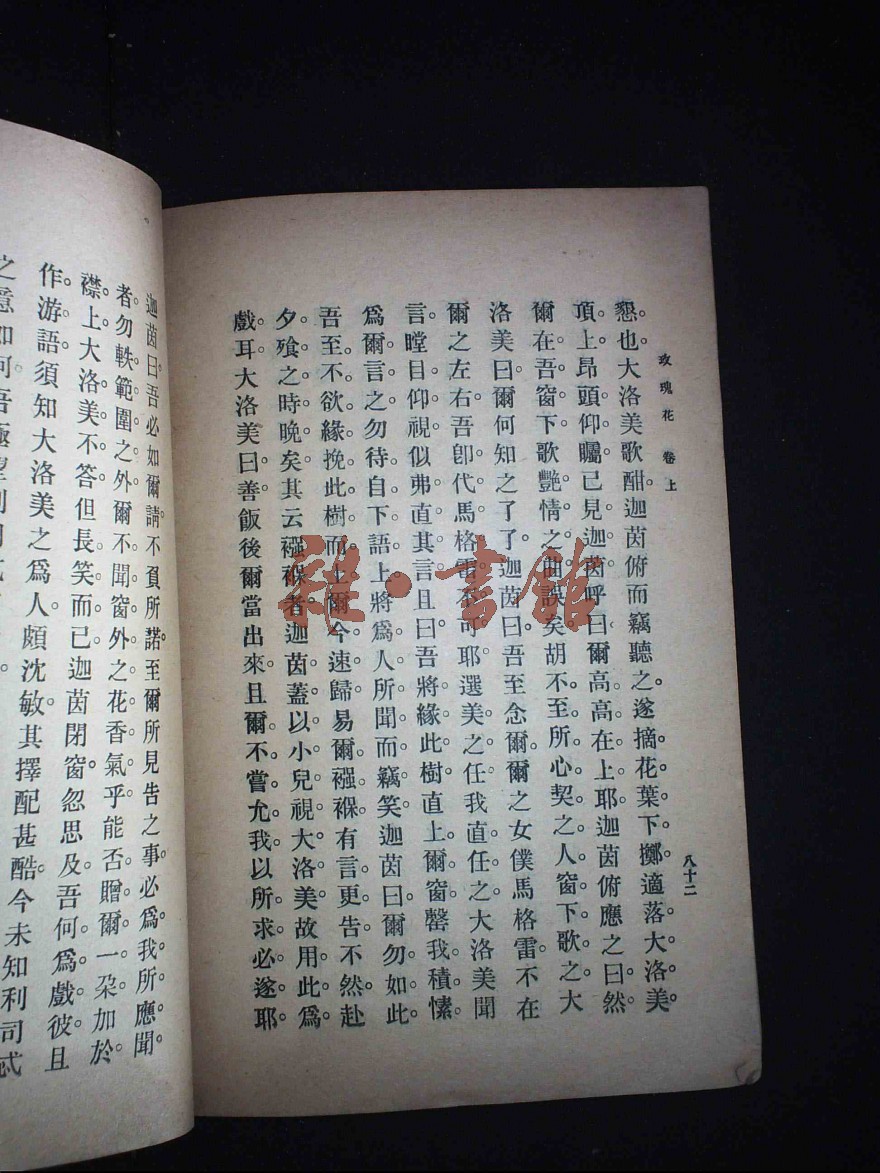 玫瑰花 卷上
八十二
懇也。大洛美歌酣。迦茵俯而竊聽之。遂摘花葉下擲。適落大洛美
頂上。昂頭仰矚。已見迦茵。呼曰。爾高高在上耶。迦茵俯應之曰。然
爾在吾窗下歌艷情之曲。誤矣。胡不至所心契之人窗下歌之。大
洛美曰。爾何知之了了。迦茵曰。吾至念爾。爾之女僕馬格雷不在
爾之左右。吾卽代馬格雷。不可耶。選美之任。我直任之。大洛美聞
言。瞠目仰視。似弗直其言。且曰。吾將緣此樹直上爾窗。罄我積愫。
爲爾言之。勿待自下語上。將爲人所聞而竊笑。迦茵曰。爾勿如此。
吾至不欲緣挽此樹而上。爾今速歸。易爾襁褓。有言更告。不然赴
夕飱之時晚矣。其云襁褓者。迦茵蓋以小兒視大洛美。故用此爲
戲耳。大洛美曰。善。飯後爾當出來。且爾不嘗允我以所求必遂耶。
迦茵曰。吾必如爾請。不負所諾。至爾所見告之事。必爲我所應聞
者。勿軼範圍之外。爾不聞窗外之花香氣乎。能否贈爾一朶加於
襟上。大洛美不答。但長笑而已。迦茵閉窗。忽思及吾何爲戲彼。且
作游語。須知大洛美之爲人。頗沈敏。其擇配甚酷。今未知利司忒
之意如何。吾極望利司忒
雜·書館